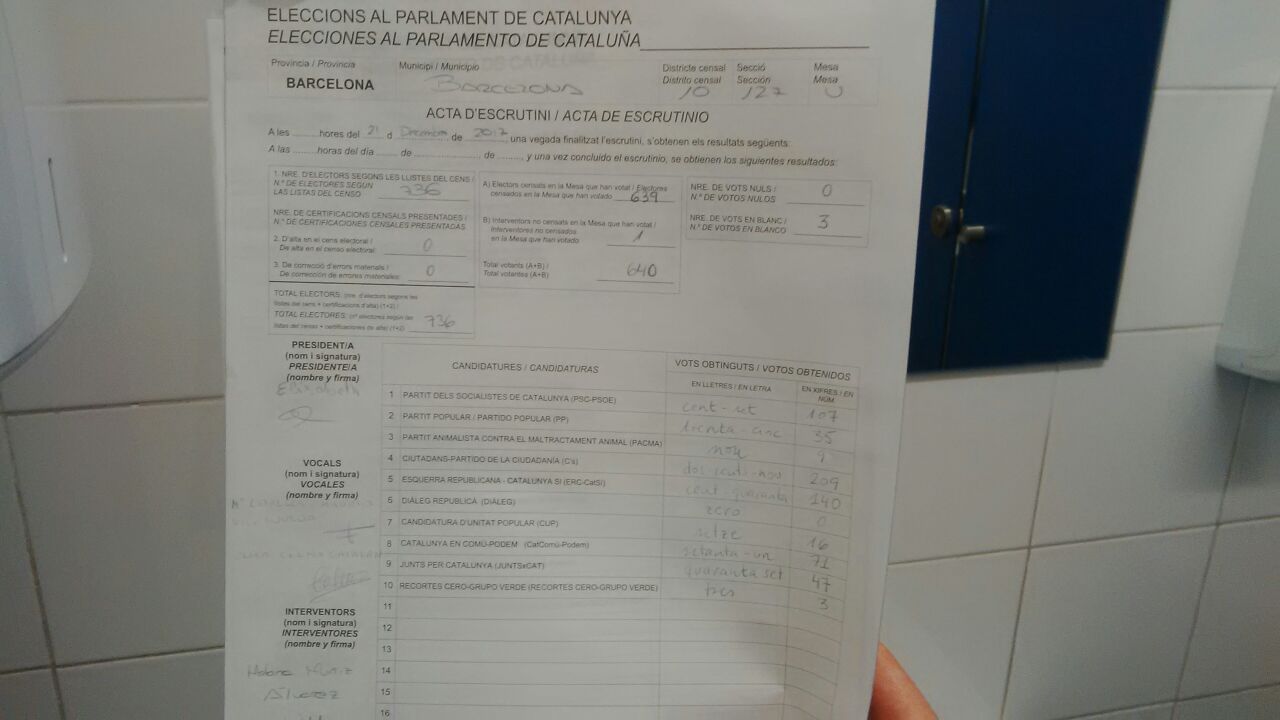 ELECCIONS AL PARLAMENT DE CATALUNYA
ELECCIONES AL PARLAMENTO DE CATALUÑA
Província / Provincia
BARCELONA
Municipi / Municipio
BARCELONA
Districte censal
Distrito censal
10
Secció
Sección
127
Mesa
Mesa
U
ACTA D'ESCRUTINI / ACTA DE ESCRUTINIO
A les ......... hores del 21 d Decembre de 2017, una vegada finalitzat l'escrutini, s'obtenen els resultats següents:
A las ......... horas del día ........ de .................... de ........ y una vez concluido el escrutinio, se obtienen los siguientes resultados:
1. NRE. D'ELECTORS SEGONS LES LLISTES DEL CENS /
N.º DE ELECTORES SEGÚN
LAS LISTAS DEL CENSO
736
NRE. DE CERTIFICACIONS CENSALS PRESENTADES /
N.º DE CERTIFICACIONES CENSALES PRESENTADAS
2. D'alta en el cens electoral /
De alta en el censo electoral:
0
3. De correcció d'errors materials /
De corrección de errores materiales:
0
TOTAL ELECTORS: (nre. d'electors segons les
llistes del cens + certificacions d'alta) (1+2) /
TOTAL ELECTORES: (nº electores según las
listas del censo + certificaciones de alta) (1+2)
736
A) Electors censats en la Mesa que han votat / Electores
censados en la Mesa que han votado
639
B) Interventors no censats en la Mesa que han votat /
Interventores no censados
en la Mesa que han votado
1
Total votants (A+B) /
Total votantes (A+B)
640
NRE. DE VOTS NULS /
N.º DE VOTOS NULOS
0
NRE. DE VOTS EN BLANC /
N.º DE VOTOS EN BLANCO
3
PRESIDENT/A
(nom i signatura)
PRESIDENTE/A
(nombre y firma)
Elisabeth
VOCALS
(nom i signatura)
VOCALES
(nombre y firma)
INTERVENTORS
(nom i signatura)
INTERVENTORES
(nombre y firma)
Muñiz
Álvarez
CANDIDATURES / CANDIDATURAS
VOTS OBTINGUTS / VOTOS OBTENIDOS
EN LLETRES / EN LETRA
EN XIFRES / EN NÚM.
1 PARTIT DELS SOCIALISTES DE CATALUNYA (PSC-PSOE) cent-set 107
2 PARTIT POPULAR / PARTIDO POPULAR (PP) trenta-cinc 35
3 PARTIT ANIMALISTA CONTRA EL MALTRACTAMENT ANIMAL (PACMA) nou 9
4 CIUTADANS-PARTIDO DE LA CIUDADANÍA (C's) dos-cents-nou 209
5 ESQUERRA REPUBLICANA - CATALUNYA SÍ (ERC-CatSí) cent-quaranta 140
6 DIÀLEG REPUBLICÀ (DIÀLEG) zero 0
7 CANDIDATURA D'UNITAT POPULAR (CUP) setze 16
8 CATALUNYA EN COMÚ-PODEM (CatComú-Podem) setanta-un 71
9 JUNTS PER CATALUNYA (JUNTSxCAT) quaranta set 47
10 RECORTES CERO-GRUPO VERDE (RECORTES CERO-GRUPO VERDE) tres 3
11
12
13
14
15
16